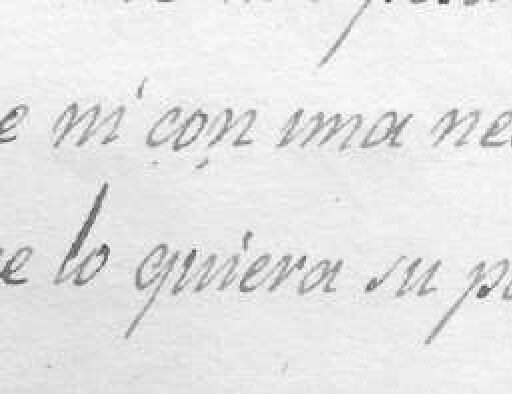 e ni con una ne
e lo quiera su p